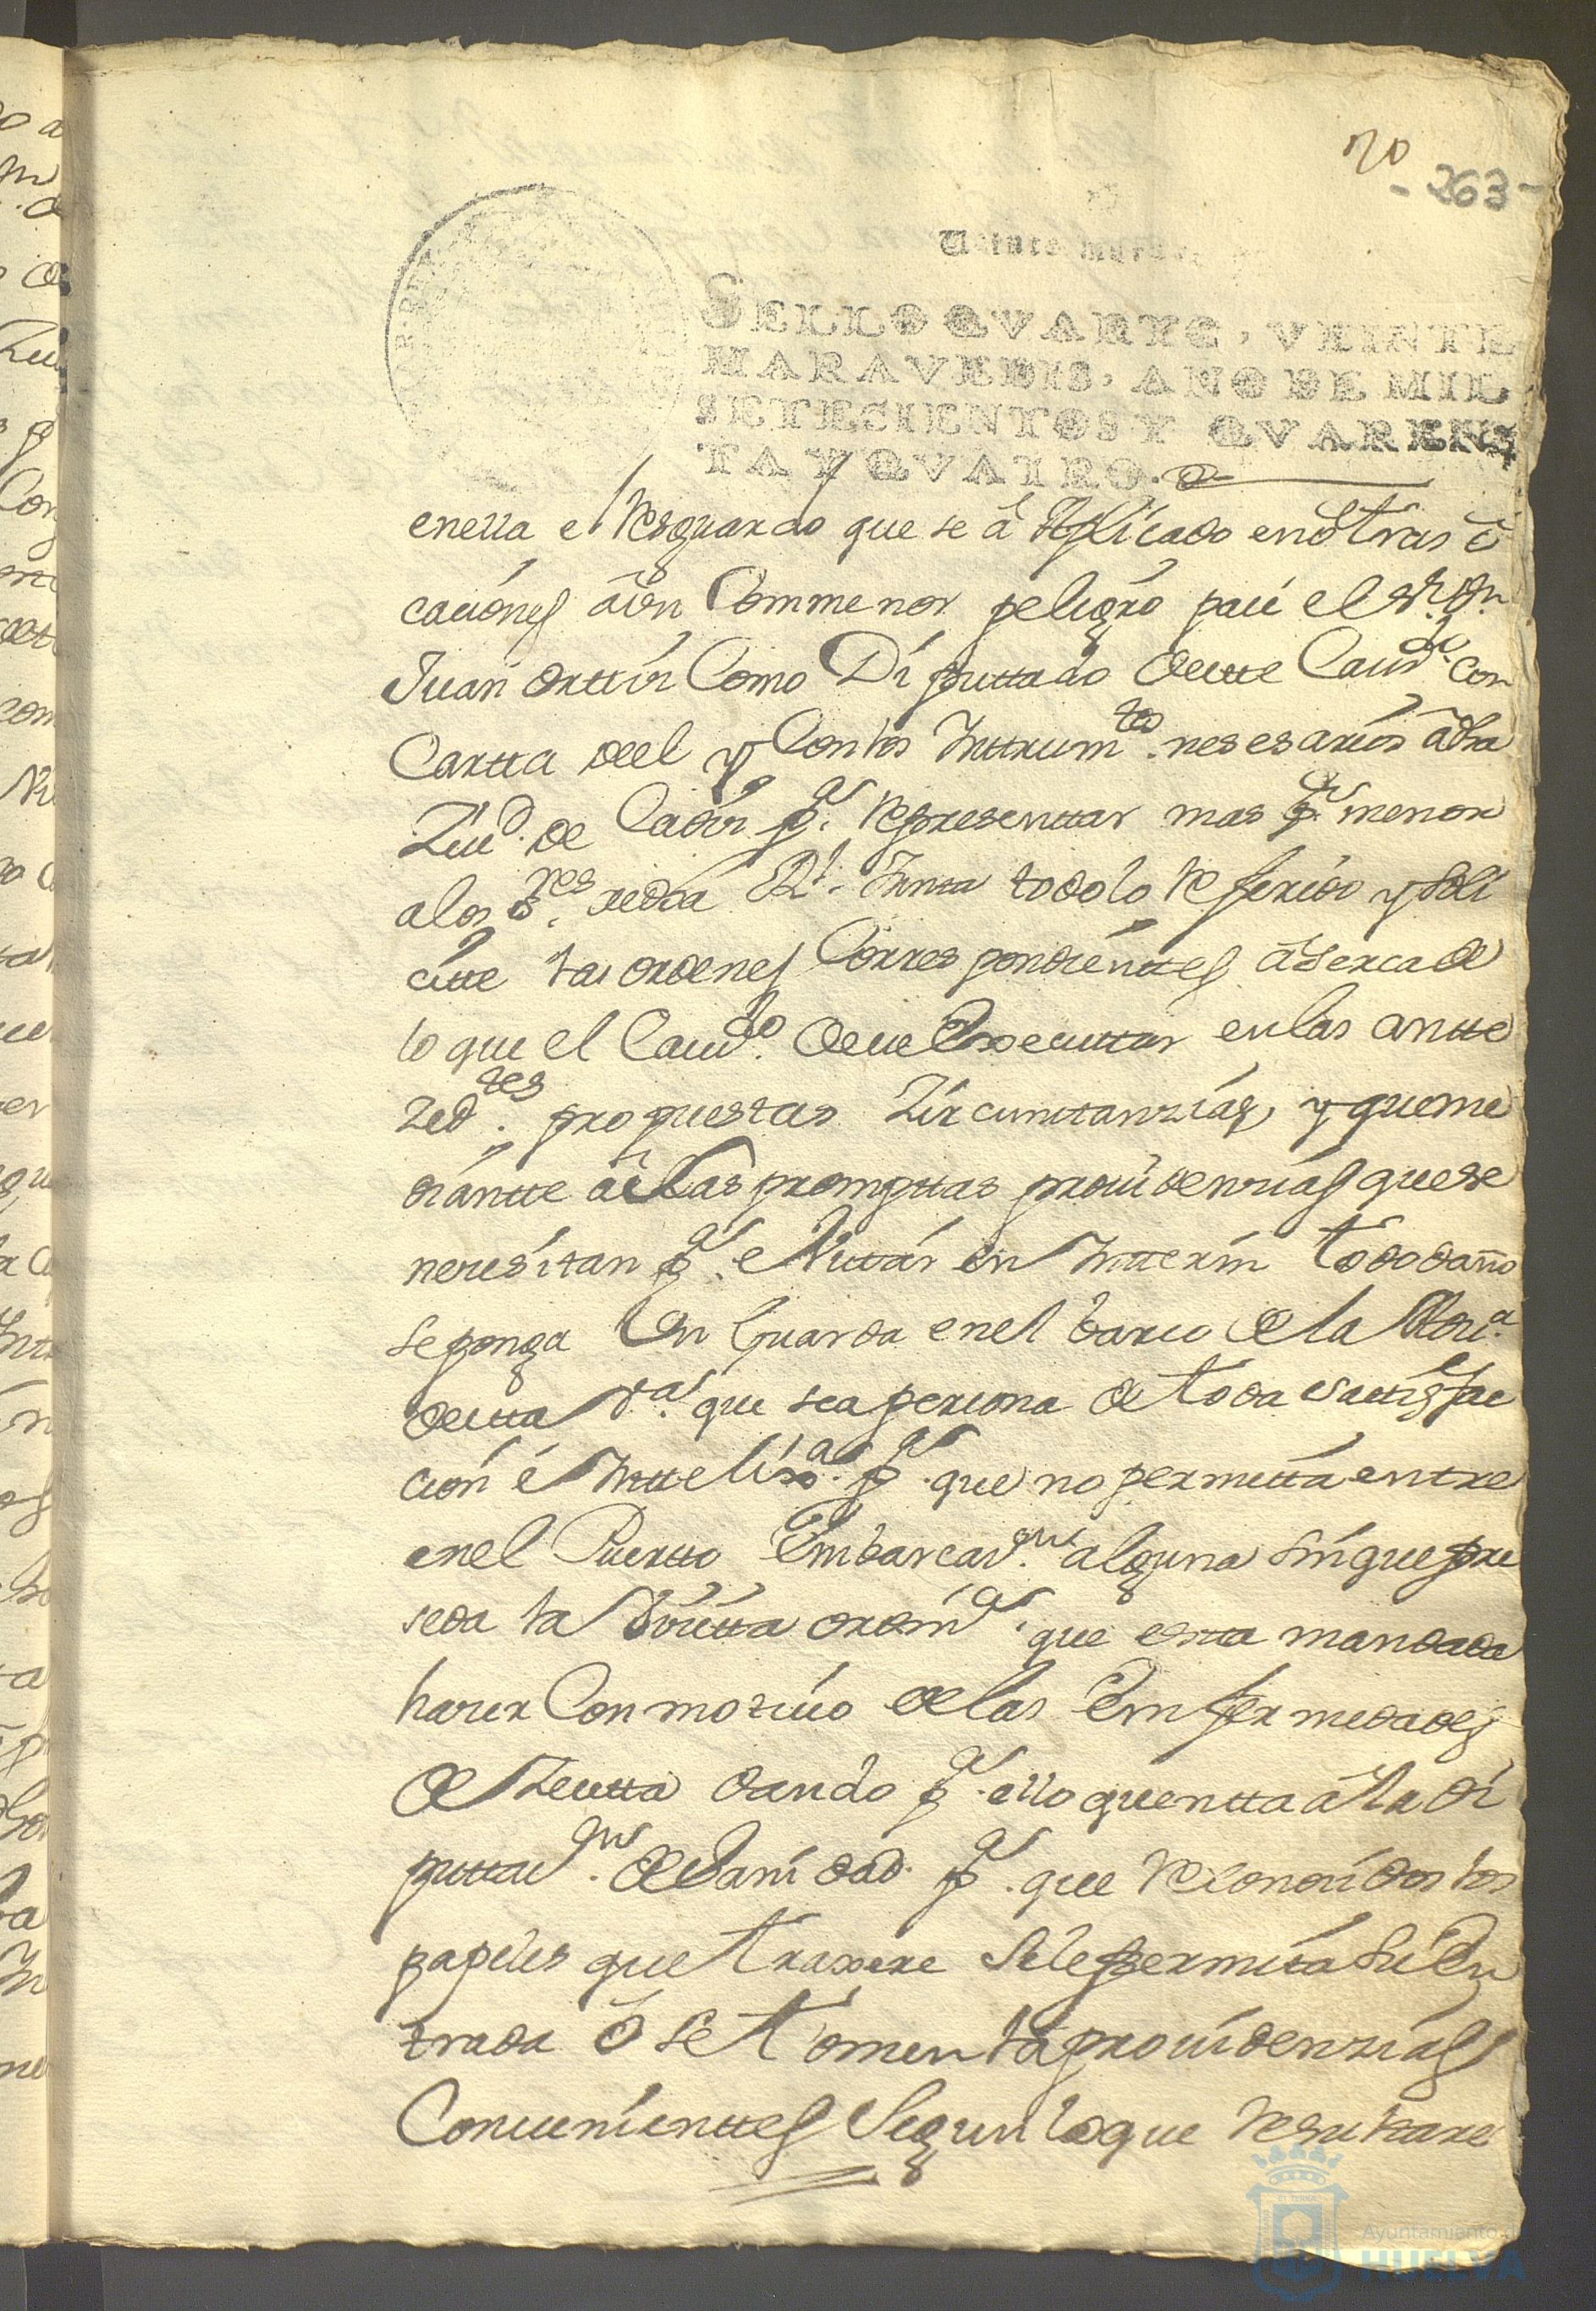 20
- 263 -
Veinte marav
SELLO QVARTO, VEINTE
MARAVEDIS, AÑO DE MIL
SETECIENTOS Y QVAREN
TA Y QVATRO.
enella el Resguardo que se â aplicado enôtras
caciónes âun Commenor peligro paũ el Sr. Dn.
Juan orttiz Como Diputtado deeste Caudo. con
Cartta deel y Conlos Insttrumtos. nesesarios âdha
Ziud. de Cadiz pa. Representtar mas pr. menor
alos Sres. dedha Rl. Junta todolo Referido ysoli
citte las ordenes Correspondienttes âserca de
lo que el Caudo. deue Executtar enlas antte
Zedtes. propuestas Zircunstanzias, y queme
diantte alas prompttas prouidenzias quese
necesitan pa. evittar en Intterin tododaño
seponga Un Guarda enel barco dela
desta Va. que sea persona de toda sattisfac
ción é Inttelixa. pa. que no permitta entre
enel Puertto Embarcazn. alguna sinquepre
seda la Visitta ordina. que esta mandada
hacer Con motiuo delas Emfermedades
de Zeutta dando pa. ello quentta âla Di
puttazn. de Sanidad pa. que Reconocidos los
papeles que traxere Selepermita suEn
trada ô se tomen las prouidenzias
Conuenienttes Segun loque Resultare
Ayuntamiento de
HUELVA